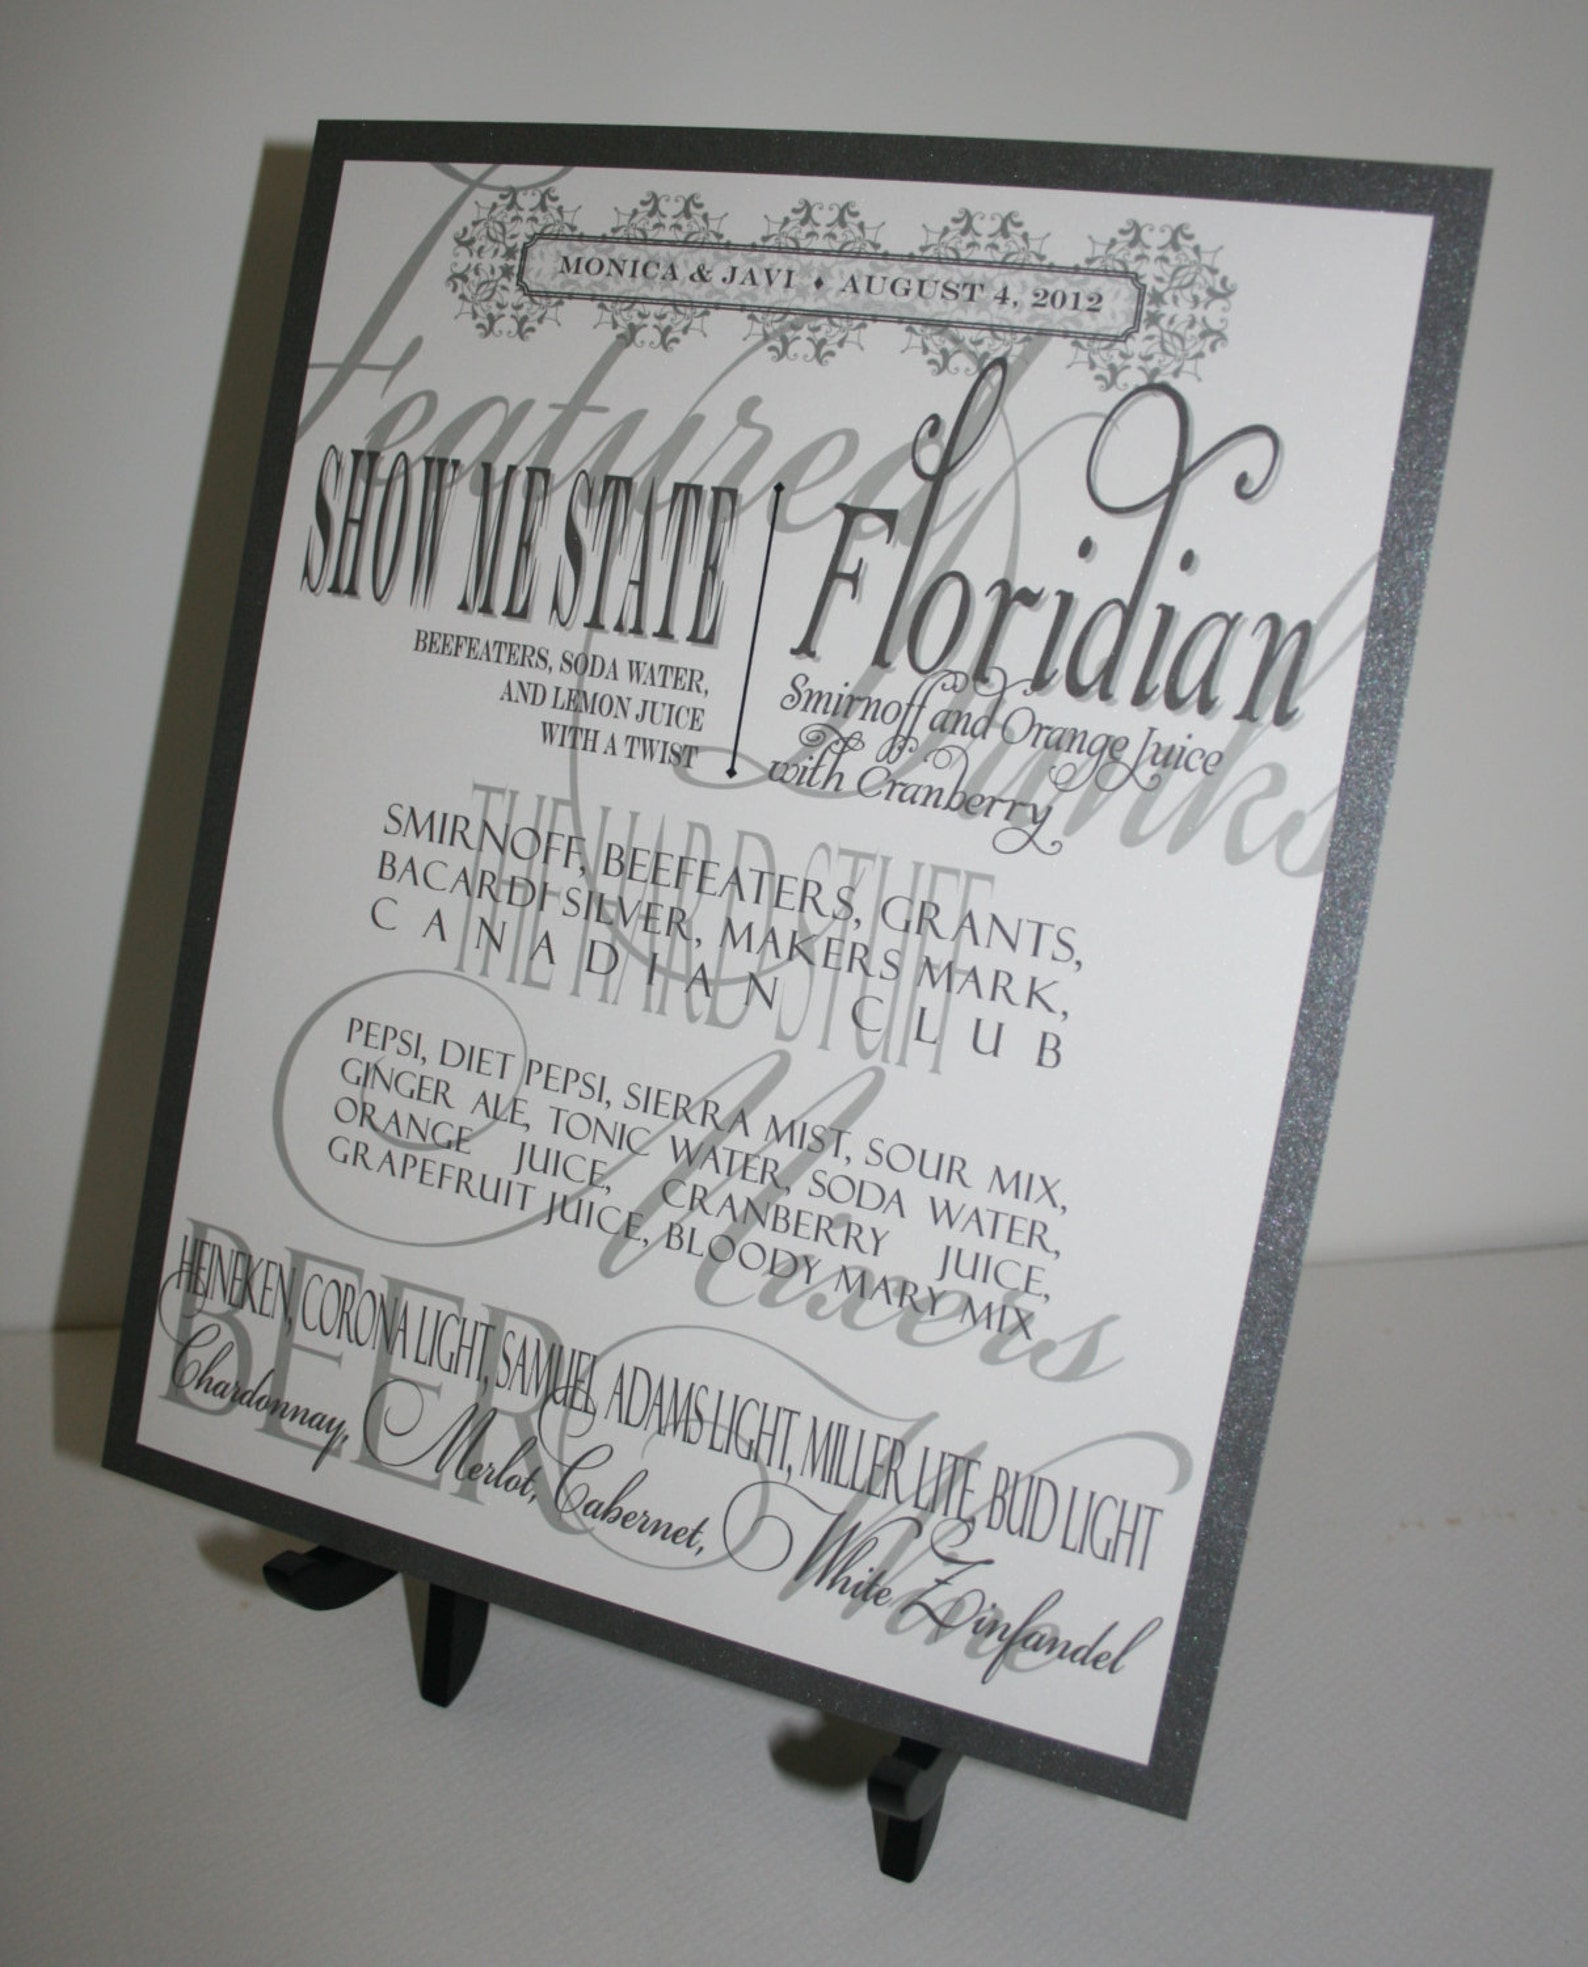 MONICA & JAVI ♦ AUGUST 4, 2012
Featured Drinks
SHOW ME STATE
BEEFEATERS, SODA WATER,
AND LEMON JUICE
WITH A TWIST
Floridian
Smirnoff and Orange Juice
with Cranberry
THE HARD STUFF
SMIRNOFF, BEEFEATERS, GRANTS,
BACARDI SILVER, MAKERS MARK,
CANADIAN CLUB
Mixers
PEPSI, DIET PEPSI, SIERRA MIST, SOUR MIX,
GINGER ALE, TONIC WATER, SODA WATER,
ORANGE JUICE, CRANBERRY JUICE,
GRAPEFRUIT JUICE, BLOODY MARY MIX
BEER
HEINEKEN, CORONA LIGHT, SAMUEL ADAMS LIGHT, MILLER LITE, BUD LIGHT
Wine
Chardonnay, Merlot, Cabernet, White Zinfandel